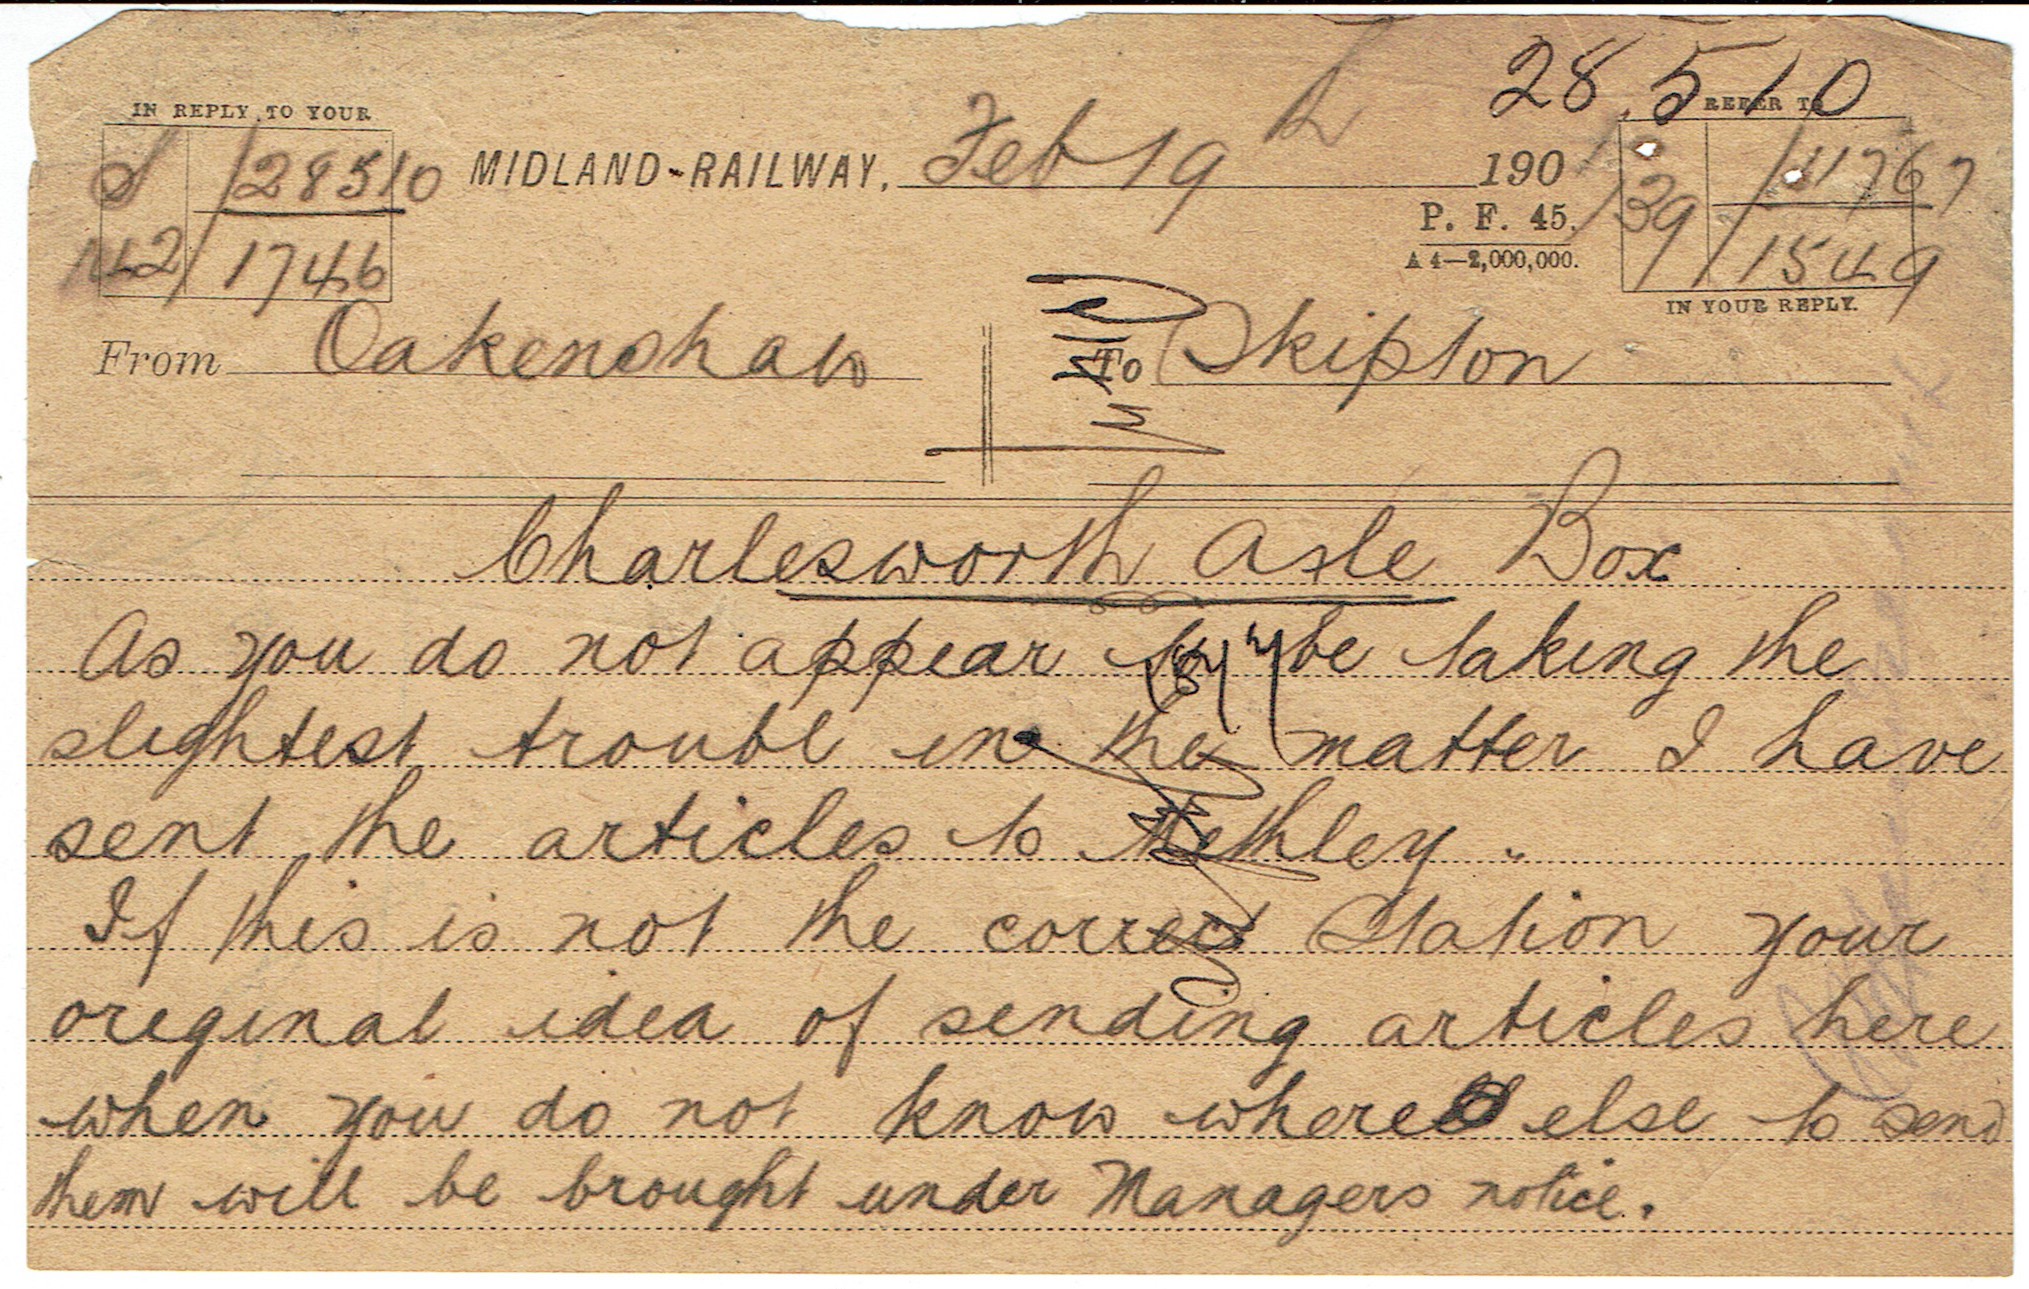 28510
IN REPLY TO YOUR
REFER TO
S / 28510
1746
MIDLAND-RAILWAY, Feb 19 190
P. F. 45.
A 4—2,000,000.
39 / 11767
1549
IN YOUR REPLY.
From Oakenshaw
To Skipton
Charlesworth Axle Box
As you do not appear to be taking the
slightest trouble in the matter I have
sent the articles to Methley.
If this is not the correct Station your
original idea of sending articles here
when you do not know where else to send
them will be brought under Managers notice.